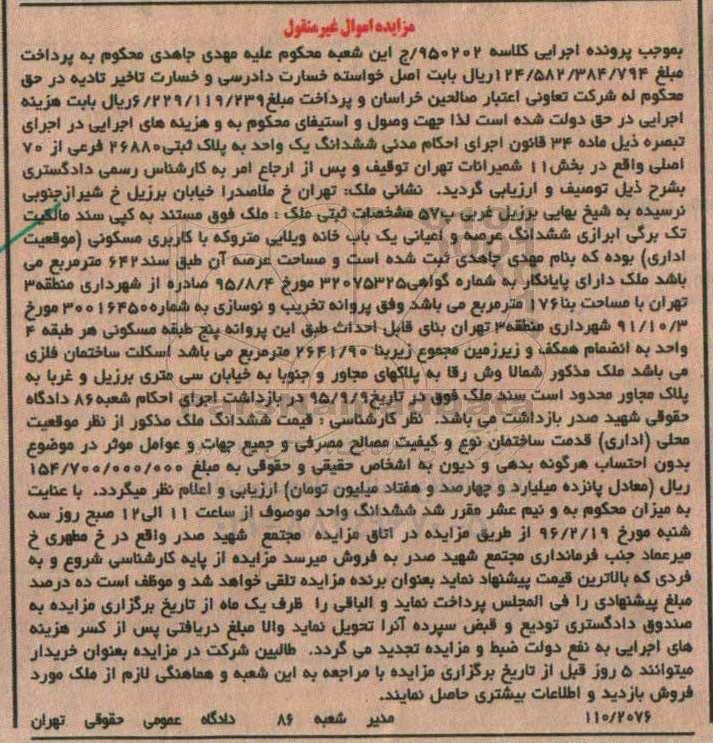 مزایده اموال غیرمنقول
بموجب پرونده اجرایی کلاسه ۹۵۰۲۰۲/ج این شعبه محکوم علیه مهدی جاهدی محکوم به پرداخت
مبلغ ۱۲۴/۵۸۲/۳۸۴/۷۹۴ریال بابت اصل خواسته خسارت دادرسی و خسارت تاخیر تادیه در حق
محکوم له شرکت تعاونی اعتبار صالحین خراسان و پرداخت مبلغ۶/۲۲۹/۱۱۹/۲۳۹ریال بابت هزینه
اجرایی در حق دولت شده است لذا جهت وصول و استیفای محکوم به و هزینه های اجرایی در اجرای
تبصره ذیل ماده ۳۴ قانون اجرای احکام مدنی ششدانگ یک واحد به پلاک ثبتی۲۶۸۸۰ فرعی از ۷۰
اصلی واقع در بخش۱۱ شمیرانات تهران توقیف و پس از ارجاع امر به کارشناس رسمی دادگستری
بشرح ذیل توصیف و ارزیابی گردید. نشانی ملک: تهران خ ملاصدرا خیابان برزیل خ شیرازجنوبی
نرسیده به شیخ بهایی برزیل غربی پ۵۷ مشخصات ثبتی ملک : ملک فوق مستند به کپی سند مالکیت
تک برگی ابرازی ششدانگ عرصه و اعیانی یک باب خانه ویلایی متروکه با کاربری مسکونی (موقعیت
اداری) بوده که بنام مهدی جاهدی ثبت شده است و مساحت عرصه آن طبق سند۶۴۲ مترمربع می
باشد ملک دارای پایانکار به شماره گواهی۳۲۰۷۵۳۲۵ مورخ ۹۵/۸/۴ صادره از شهرداری منطقه۳
تهران با مساحت بنا۱۷۶ مترمربع می باشد وفق پروانه تخریب و نوسازی به شماره۳۰۰۱۶۴۵۰ مورخ
۹۱/۱۰/۳ شهرداری منطقه۳ تهران بنای قابل احداث طبق این پروانه پنج طبقه مسکونی هر طبقه ۴
واحد به انضمام همکف و زیرزمین مجموع زیربنا ۲۶۴۱/۹۰ مترمربع می باشد اسکلت ساختمان فلزی
می باشد ملک مذکور شمالا وش رقا به پلاکهای مجاور و جنوبا به خیابان سی متری برزیل و غربا به
پلاک مجاور محدود است سند ملک فوق در تاریخ۹۵/۹/۹ در بازداشت اجرای احکام شعبه۸۶ دادگاه
حقوقی شهید صدر بازداشت می باشد. نظر کارشناسی : قیمت ششدانگ ملک مذکور از نظر موقعیت
محلی (اداری) قدمت ساختمان نوع و کیفیت مصالح مصرفی و جمیع جهات و عوامل موثر در موضوع
بدون احتساب هرگونه بدهی و دیون به اشخاص حقیقی و حقوقی به مبلغ ۱۵۴/۷۰۰/۰۰۰/۰۰۰
ریال (معادل پانزده میلیارد و چهارصد و هفتاد میلیون تومان) ارزیابی و اعلام نظر میگردد. با عنایت
به میزان محکوم به و نیم عشر مقرر شد ششدانگ واحد موصوف از ساعت ۱۱ الی۱۲ صبح روز سه
شنبه مورخ ۹۶/۲/۱۹ از طریق مزایده در اتاق مزایده مجتمع شهید صدر واقع در خ مطهری خ
میرعماد جنب فرمانداری مجتمع شهید صدر به فروش میرسد مزایده از پایه کارشناسی شروع و به
فردی که بالاترین قیمت پیشنهاد نماید بعنوان برنده مزایده تلقی خواهد شد و موظف است ده درصد
مبلغ پیشنهادی را فی المجلس پرداخت نماید و الباقی را ظرف یک ماه از تاریخ برگزاری مزایده به
صندوق دادگستری تودیع و قبض سپرده آنرا تحویل نماید والا مبلغ دریافتی پس از کسر هزینه
های اجرایی به نفع دولت ضبط و مزایده تجدید می گردد. طالبین شرکت در مزایده بعنوان خریدار
میتوانند ۵ روز قبل از تاریخ برگزاری مزایده با مراجعه به این شعبه و هماهنگی لازم از ملک مورد
فروش بازدید و اطلاعات بیشتری حاصل نمایند.
۱۱۰/۲۰۷۶ مدیر شعبه ۸۶ دادگاه عمومی حقوقی تهران